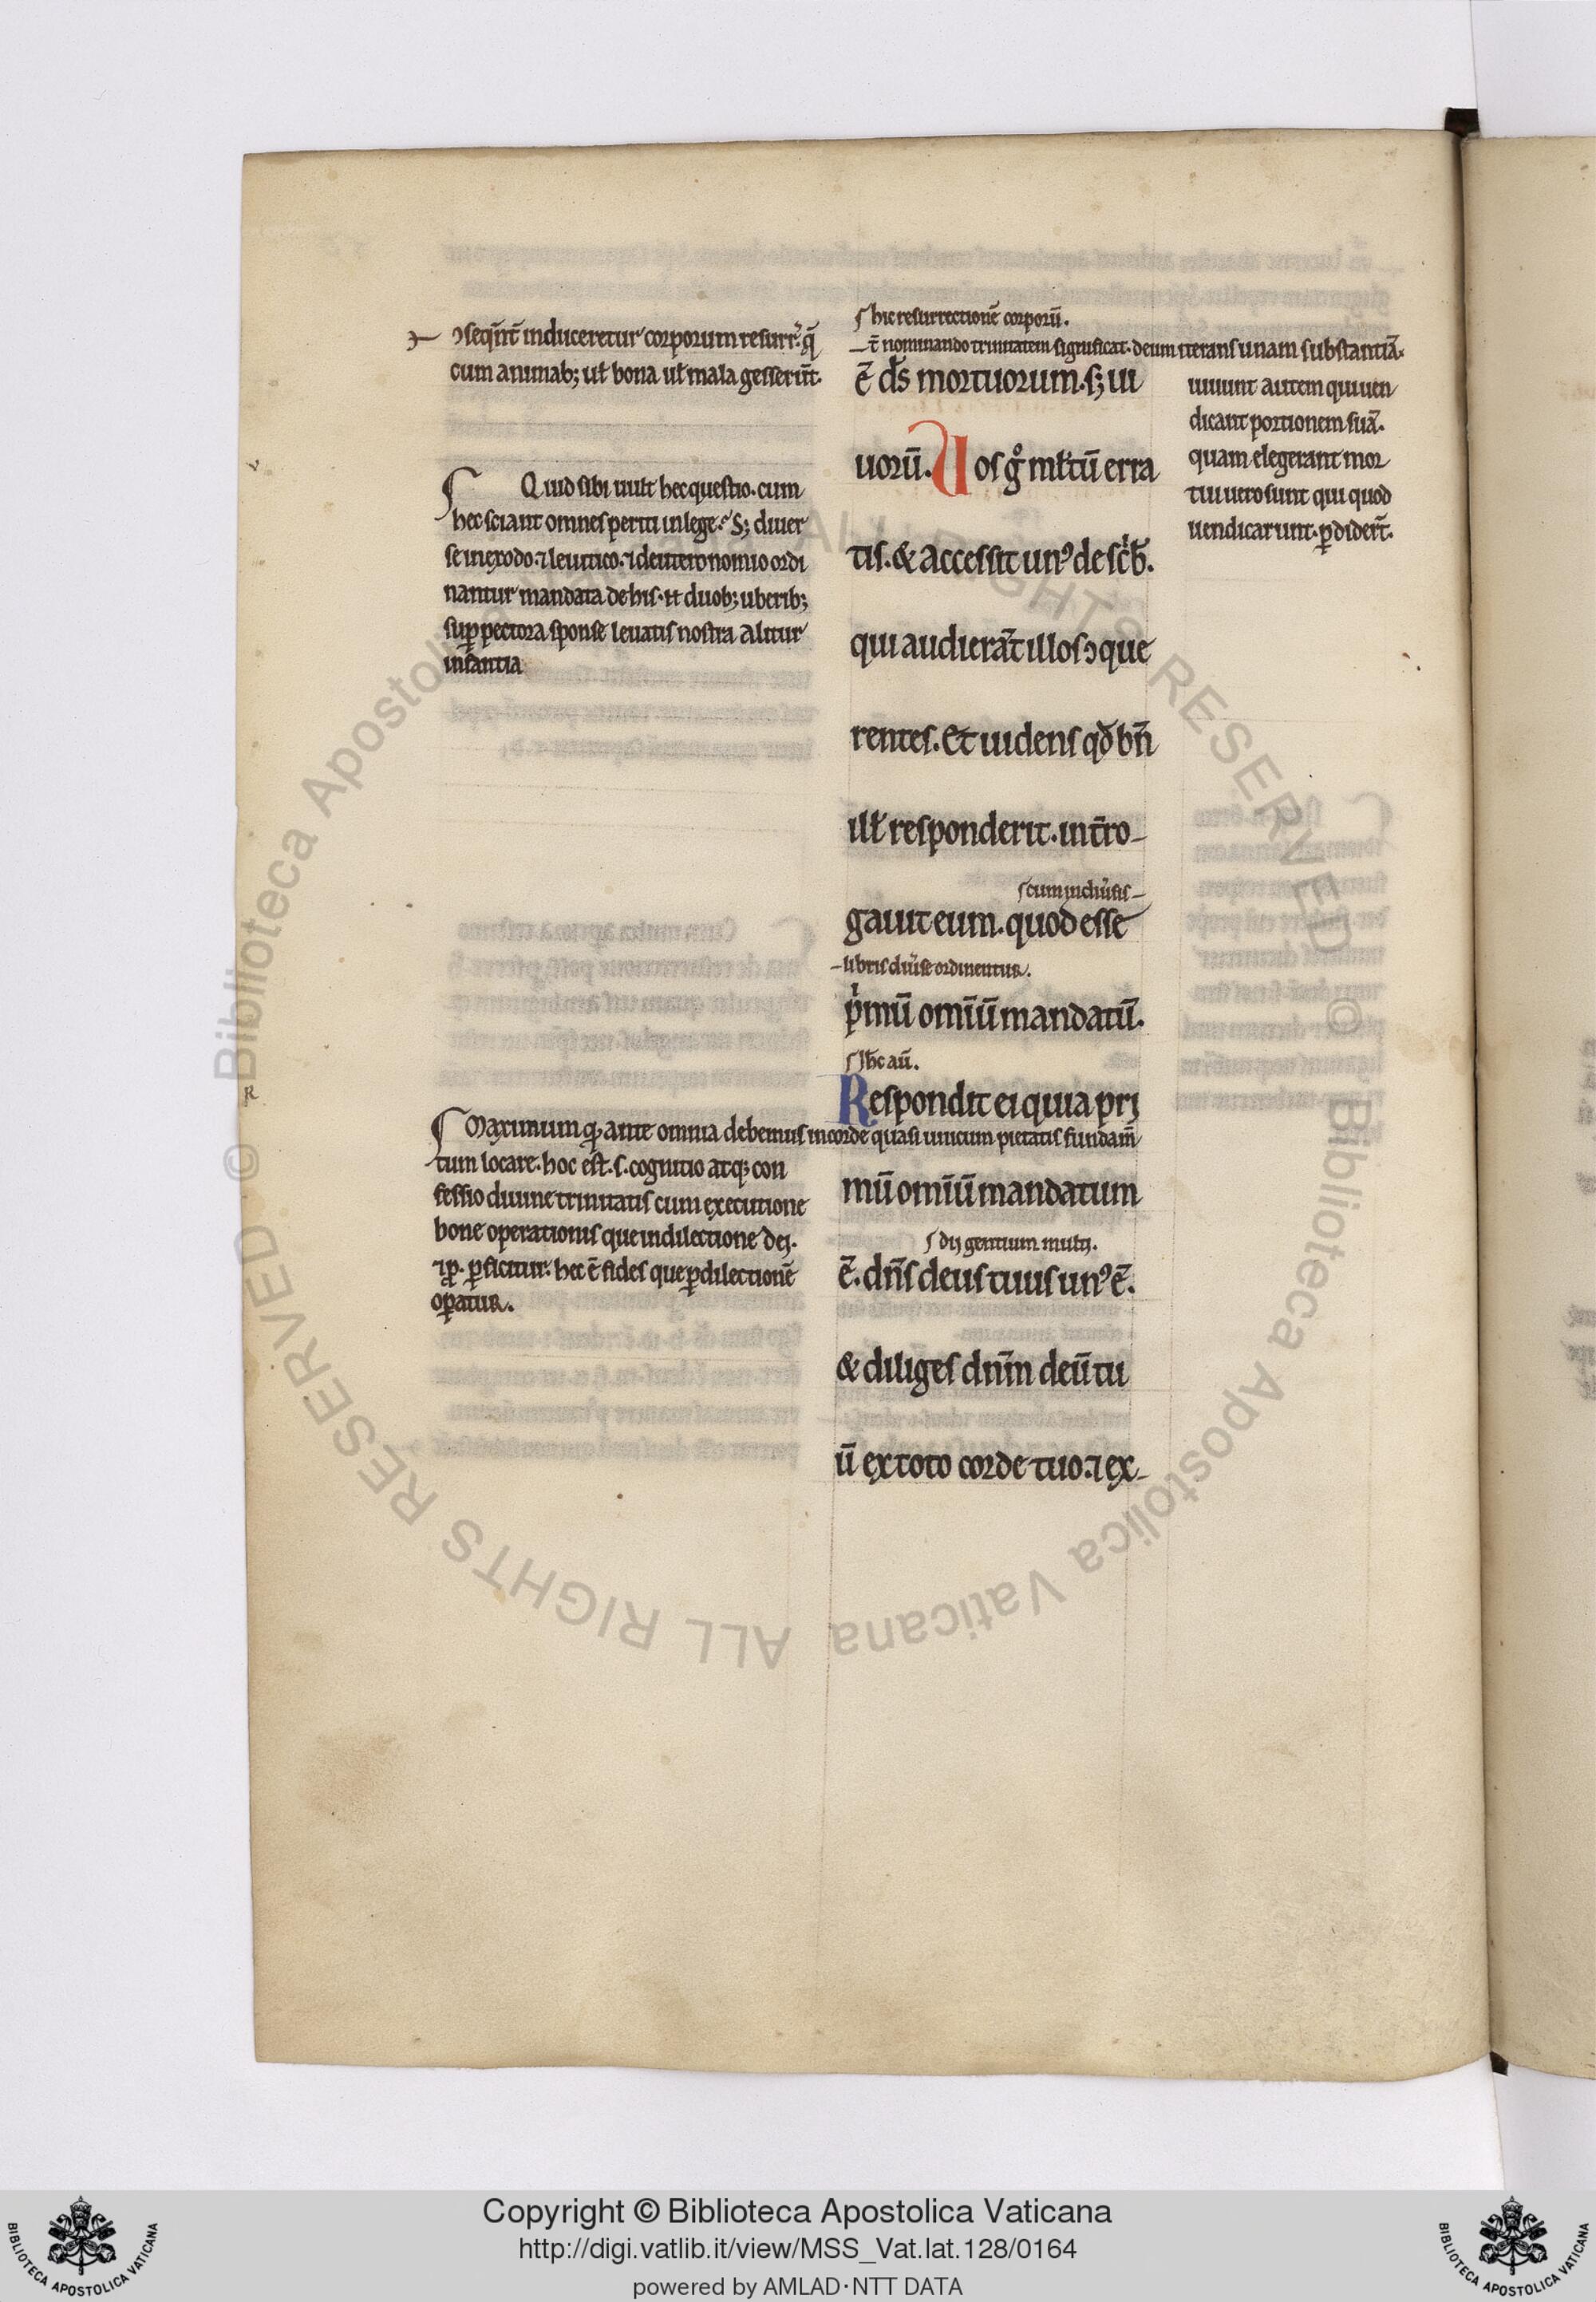 ɔseqn̄t induceretur corporum resurr̄. q̄
cum animab; ul̄ bona ul̄ mala gesserūt.
Quid sibi uult hec questio. cum
hec sciant omnes periti in lege? S; diuer
se in exodo. ⁊ leuitico. ⁊ deuteronomio ordi
nantur mandata de his. ⁊ duob; uberib;
sup̄ pectora sponse leuatis nostra alitur
infantia
Maximum q; ante omnia debemus in corde quasi unicum pietatis fundam̄
tum locare. hoc est. s. cognitio atq; con
fessio diuine trinitatis cum executione
bone operationis que in dilectione dei.
⁊ ꝓ. ꝑficitur. hec ē fides que ꝑ dilectionē
oꝑatur.
hic resurrectionē corporū.
t̄ nominando trinitatem significat. deum iterans unam substantiā.
ē ds̄ mortuorum. s; ui
uorū. Uos gͦ ml̄tū erra
tis. & accessit unꝰ de scͥb̄.
qui audierāt illos ɔque
rentes. Et uidens qd̄ bn̄
ill̄ responderit. int̄ro
cum in diūsis
gauit eum. quod esse
libris diūse ordinentur.
pͥmū omīū mandatū.
Ih̄c aū.
Respondit ei quia pri
mū omīū mandatum
dij gentium multi.
ē. dn̄s deus tuus unꝰ ē.
& diliges dn̄m deū tu
ū ex toto corde tuo. ⁊ ex
uiuunt autem qui uen
dicant portionem suā.
quam elegerant mor
tui uero sunt qui quod
uendicarunt. ꝑdider̄t.
R
Copyright © Biblioteca Apostolica Vaticana
http://digi.vatlib.it/view/MSS_Vat.lat.128/0164
powered by AMLAD·NTT DATA
© Biblioteca Apostolica Vaticana ALL RIGHTS RESERVED
© Biblioteca Apostolica Vaticana ALL RIGHTS RESERVED
BIBLIOTECA APOSTOLICA VATICANA
BIBLIOTECA APOSTOLICA VATICANA